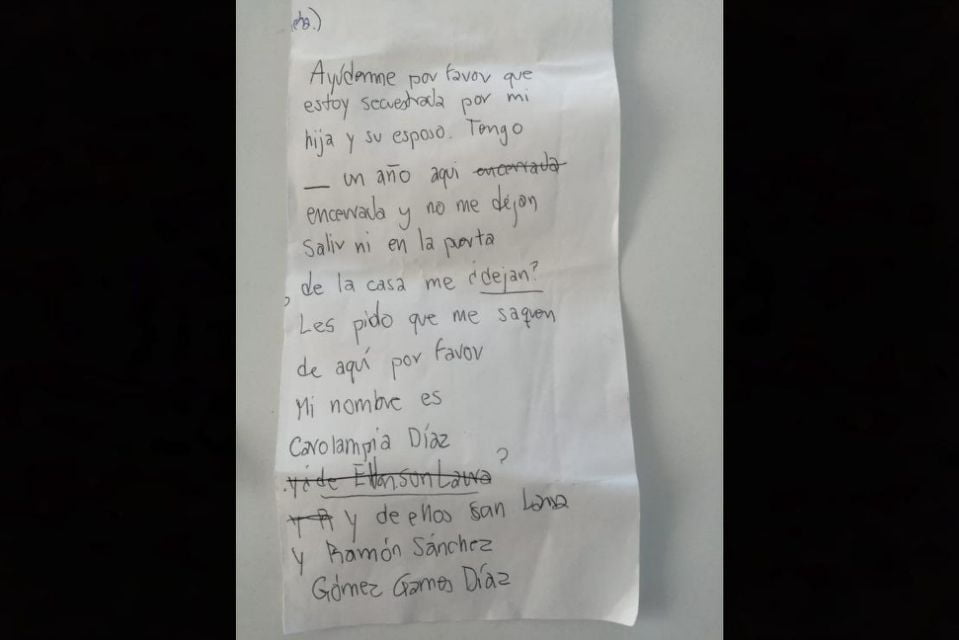 Ayúdenme por favor que
estoy secuestrada por mi
hija y su esposo. Tengo
_ un año aqui encerrada
encerrada y no me dejan
salir ni en la puerta
de la casa me ¿dejan?
Les pido que me saquen
de aquí por favor
Mi nombre es
Carolampia Díaz
?
y de ellos son
y Ramón Sánchez
Gómez Díaz